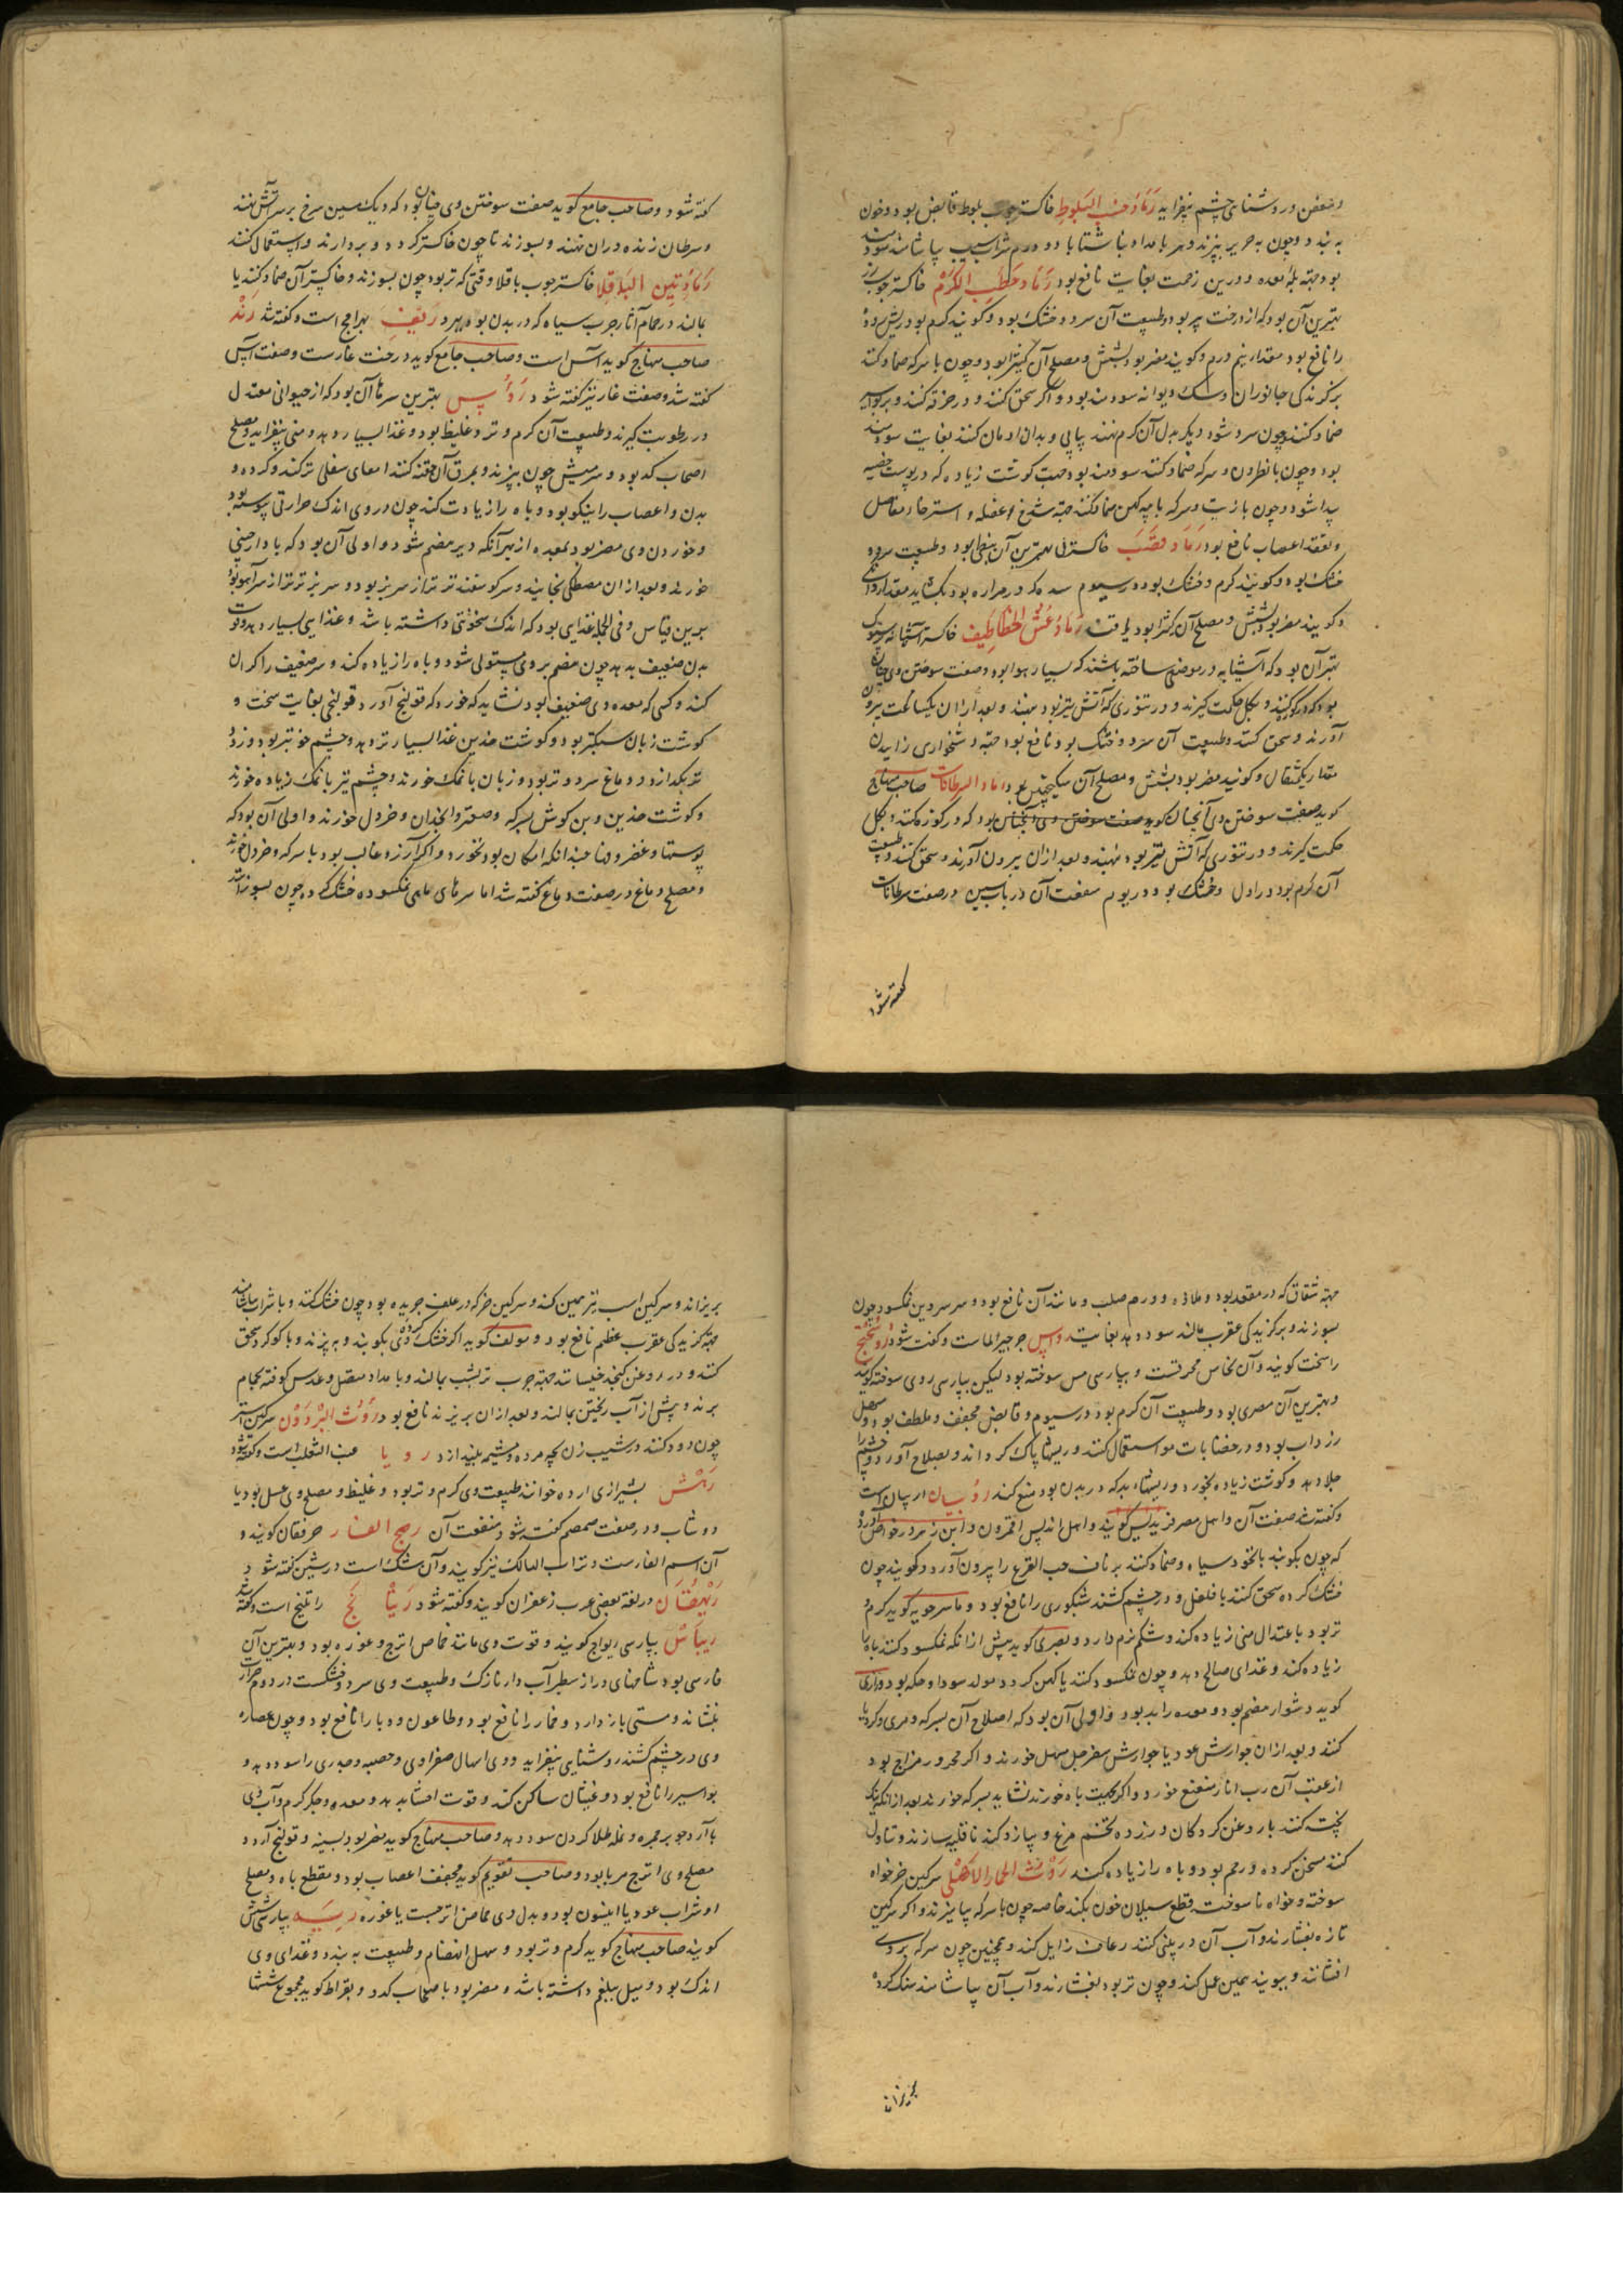 وعفص و روشنائی چشم بیفزاید رَمَادُ خشبِ البَلّوط خاکستر چوب بلوط قابض بود و خون
به بندد و چون به حریر بیزند و هر بامداد ناشتا با دو درم شراب سیب بیاشامند سودمند
بود جهة بله معده و درین زحمت بغایت نافع بود رَمَاد حَطَبِ الکَرْم خاکستر چوب رز
بهترین آن بود که از درخت پیر بود و طبیعت آن سرد و خشک بود و گویند گرم بود ریش روده
را نافع بود مقدار نیم درم و گویند مضر بود بشش و مصلح آن کتیرا بود و چون با سرکه ضماد کنند
بر گزندگی جانوران و سگ دیوانه سودمند بود و اگر سحق کنند و در خرقه کنند و بر بواسیر
ضماد کنند چون سرد شود دیگر بدل آن گرم نهند پیاپی و بدان ادمان کنند بغایت سودمند
بود و چون با نطرون و سرکه ضماد کنند سودمند بود جهت گوشت زیاده که در پوست خصیه
پیدا شود و چون با زیت و سرکه با پیه کهن ضماد کنند جهة شدخ عضله و استرخاء مفاصل
و تعقد اعصاب نافع بود رَمَاد قصَب خاکستر نی بهترین آن نبطی بود و طبیعت سرد و
خشک بود و گویند گرم و خشک بود در سیوم سده که در مراره بود بگشاید مقدار دوای
و گویند مضر بود بشش و مصلح آن کثیرا بود یا قند رَمَادُ عُشّ الخطاطیف خاکستر آشیانه پرستوک
بهترین آن بود که آشیانه در موضعی ساخته باشند که بسیار هوا بود و صفت سوختن وی چنان
بود که در کوز کنند و بگل حکمت گیرند و در تنوری که آتش تیز بود نهند و بعد از آن یکساعت بیرون
آورند و سحق کنند و طبیعت آن سرد و خشک بود نافع بود جهة دشخواری زاییدن
مقدار یکمثقال و گویند مضر بود بشش و مصلح آن سکنجبین بود رماد السرطانات صاحب منهاج
گوید صفت سوختن وی آنچنان گوید صفت سوختن وی آنچنان بود که در کوزه کنند و بگل
حکمت گیرند و در تنوری که آتش تیز بود نهند و بعد از آن بیرون آورند و سحق کنند و طبیعت
آن گرم بود در اول و خشک بود در دیوم منفعت آن در باب سین در صفت سرطانات
گفته شود
گفته شود و صاحب جامع گوید صفت سوختن وی چنان بود که دیک مسین سرخ بر سر آتش نهند
و سرطان زنده در آن نهند و بسوزند تا چون خاکستر گردد و بردارند و استعمال کنند
رَمَادُ تِبن الباقِلا خاکستر چوب باقلا وقتی که تر بود چون بسوزند و خاکستر آن ضماد کنند یا
بمالند در حمام آثار جرب سیاه که در بدن بود ببرد رَنَف بهرامج است و گفته شد رَنْد
صاحب منهاج گوید آس است و صاحب جامع گوید درخت غارست و صفت آس
گفته شد و صفت غار نیز گفته شود رَؤُس بهترین سرها آن بود که از حیوانی معتدل
در رطوبت گیرند و طبیعت آن گرم و تر و غلیظ بود و غذا بسیار دهد و منی بیفزاید و مصلح
اصحاب کد بود و سر میش چون بپزند و بمرق آن حقنه کنند امعای سفلی تر کند و گرده و
بدن و اعصاب را نیکو بود و باه را زیادت کند چون در وی اندک حرارتی پیوسته بود
و خوردن وی مضر بود بمعده از بهر آنکه دیر هضم شود و اولی آن بود که با دارچینی
خورند و بعد از آن مصطکی بخایند و سر گوسفند تر تر از سر بز بود و سر بز تر تر از سر آهو بود
برین قیاس و فی الجمله غذایی بود که اندک سخونتی داشته باشد و غذایی بسیار دهد و قوت
بدن ضعیف بدهد چون هضم بر وی مستولی شود و باه را زیاده کند و سر ضعیف را گران
کند و کسی که معده وی ضعیف بود نشاید که خورد که قولنج آورد قولنجی بغایت سخت و
گوشت زبان سبکتر بود و گوشت خدین غذا بسیار تر دهد و چشم خوشتر بود و زود
تر بگدازد و دماغ سرد و تر بود و زبان با نمک خورند و چشم نیز با نمک زیاده خورند
و گوشت خدین و بن گوش بسرکه و صعتر و انجدان و خردل خورند و اولی آن بود که
پوستها و غضروفها چندانکه امکان بود نخورد و اگر آرزو غالب بود با سرکه و خردل خورند
و مصلح دماغ در صفت دماغ گفته شد اما سرهای ماهی نمکسود خشک کرده چون بسوزانند
جهة شقاق که در مقعد بود و ملازه و ورم صلب و مانند آن نافع بود و سر سردین نمکسود چون
بسوزند و بر گزیدگی عقرب مالند سود دهد بغایت رواس جرجیر الماست و گفت شود رُوسُخْتَج
راسخت گویند و آن نحاس محرقست و بپارسی مس سوخته بود لیکن بپارسی روی سوخته گویند
و بهترین آن مصری بود و طبیعت آن گرم بود در سیوم و قابض مجفف و ملطف بود و مسهل
زرداب بود و در خضابات مو استعمال کنند و ریشها پاک گرداند و بصلاح آورد و چشم را
جلا دهد و گوشت زیاده بخورد و ریشهاء بد که در بدن بود منع کند رُوبیان اربیان است
و گفته شد صفت آن و اهل مصر فریدس گویند و اهل اندلس اقمرون و ابن زهر در خواص آورده
که چون بکوبند با نخود سیاه و ضماد کنند بر ناف حب القرع را بیرون آورد و گویند چون
خشک کرده سحق کنند با فلفل و در چشم کشند شبکوری را نافع بود و ماسرجویه گوید گرم و
تر بود باعتدال منی زیاده کند و شکم نرم دارد و بصری گوید پیش از آنکه نمکسود کنند باه را
زیاده کند و غذای صالح دهد و چون نمکسود کنند یا کهن گردد مولد سودا و حکه بود و رازی
گوید دشوار هضم بود و معده را بد بود و اولی آن بود که اصلاح آن بسرکه و مری و کرویا
کنند و بعد از آن جوارش عود یا جوارش سفرجل مسهل خورند و اگر محرور مزاج بود
از عقب آن رب انار منعنع خورد و اگر بجهت باه خورند نشاید بسرکه خورند بعد از آنکه نیک
پخت کنند با روغن گردکان و زرده تخم مرغ و پیاز و گند ناقلیه سازند و تناول
کنند مسخن گرده و رحم بود و باه را زیاده کند رَوْثُ الحمار الاهلی سرگین خر خواه
سوخته و خواه نا سوخته قطع سیلان خون بکند خاصه چون با سرکه بیامیزند و اگر سرگین
تازه بفشارند و آب آن در بینی کنند رعاف زایل کند و همچنین چون سرکه بر وی
افشانند و ببویند همین عمل کند و چون تر بود بفشارند و آب آن بیاشامند سنگ گرده
بریزاند
بریزاند و سرگین اسب نیز همین کند و سرگین خر که در علف چریده بود چون خشک کنند و با شراب بیاشامند
جهة گزیدگی عقرب عظیم نافع بود و مولف گوید اگر خشک کرده وی بکوبند و ببیزند و با گوگرد سحق
کنند و در روغن کنجد خیسانند جهة جرب تر بشب بمالند و بامداد منقل و عدس کوفته بحمام
برند و پیش از آب ریختن بمالند و بعد از آن بریزند نافع بود رَوْثُ البِرْذَوْن سرگین استر
چون دود کنند در شیب زن بچه مرده و مشیمه بیندازد رویا عنب الثعلب است و گفته شود
رَهْش بشیرازی ارده خوانند طبیعت وی گرم و تر بود و غلیظ و مصلح وی عسل بود یا
دوشاب و در صفت سمسم گفته شود منفعت آن رهج الفار حرفقان گویند و
آن سم الفارست و تراب الهالک نیز گویند و آن شک است در شین گفته شود
رَیْهُقَان در لغة بعضی عرب زعفران گویند و گفته شود رَیْتَا نَج راتینج است و گفته شد
رِیبَاس بپارسی ریواج گویند و قوت وی مانند حماض اترج و غوره بود و بهترین آن
فارسی بود شاخهای دراز سطبر آب دار نازک و طبیعت وی سرد و خشکست در دوم حرارت
بنشاند و مستی باز دارد و خمار را نافع بود و طاعون و وبا را نافع بود و چون عصاره
وی در چشم کشند روشنایی بیفزاید و وی اسهال صفراوی و حصبه و جدری را سود دهد و
بواسیر را نافع بود و غثیان ساکن کند و قوت احشا بدهد و معده و جگر گرم و آب وی
با آرد جو بر جمره و نمله طلا کردن سود دهد و صاحب منهاج گوید مضر بود بسینه و قولنج آورد
مصلح وی اترج مربا بود و صاحب تقویم گوید مجفف اعصاب بود و مقطع باه و مصلح
او شراب عود یا انیسون بود و بدل وی حماض اترجست یا غوره رِیَه بپارسی شش
گویند صاحب منهاج گوید گرم و تر بود و سهل انهضام و طبیعت به بندد و غذای وی
اندک بود و میل ببلغم داشته باشد و مضر بود باصحاب کدد و بقراط گوید مجموع ششها